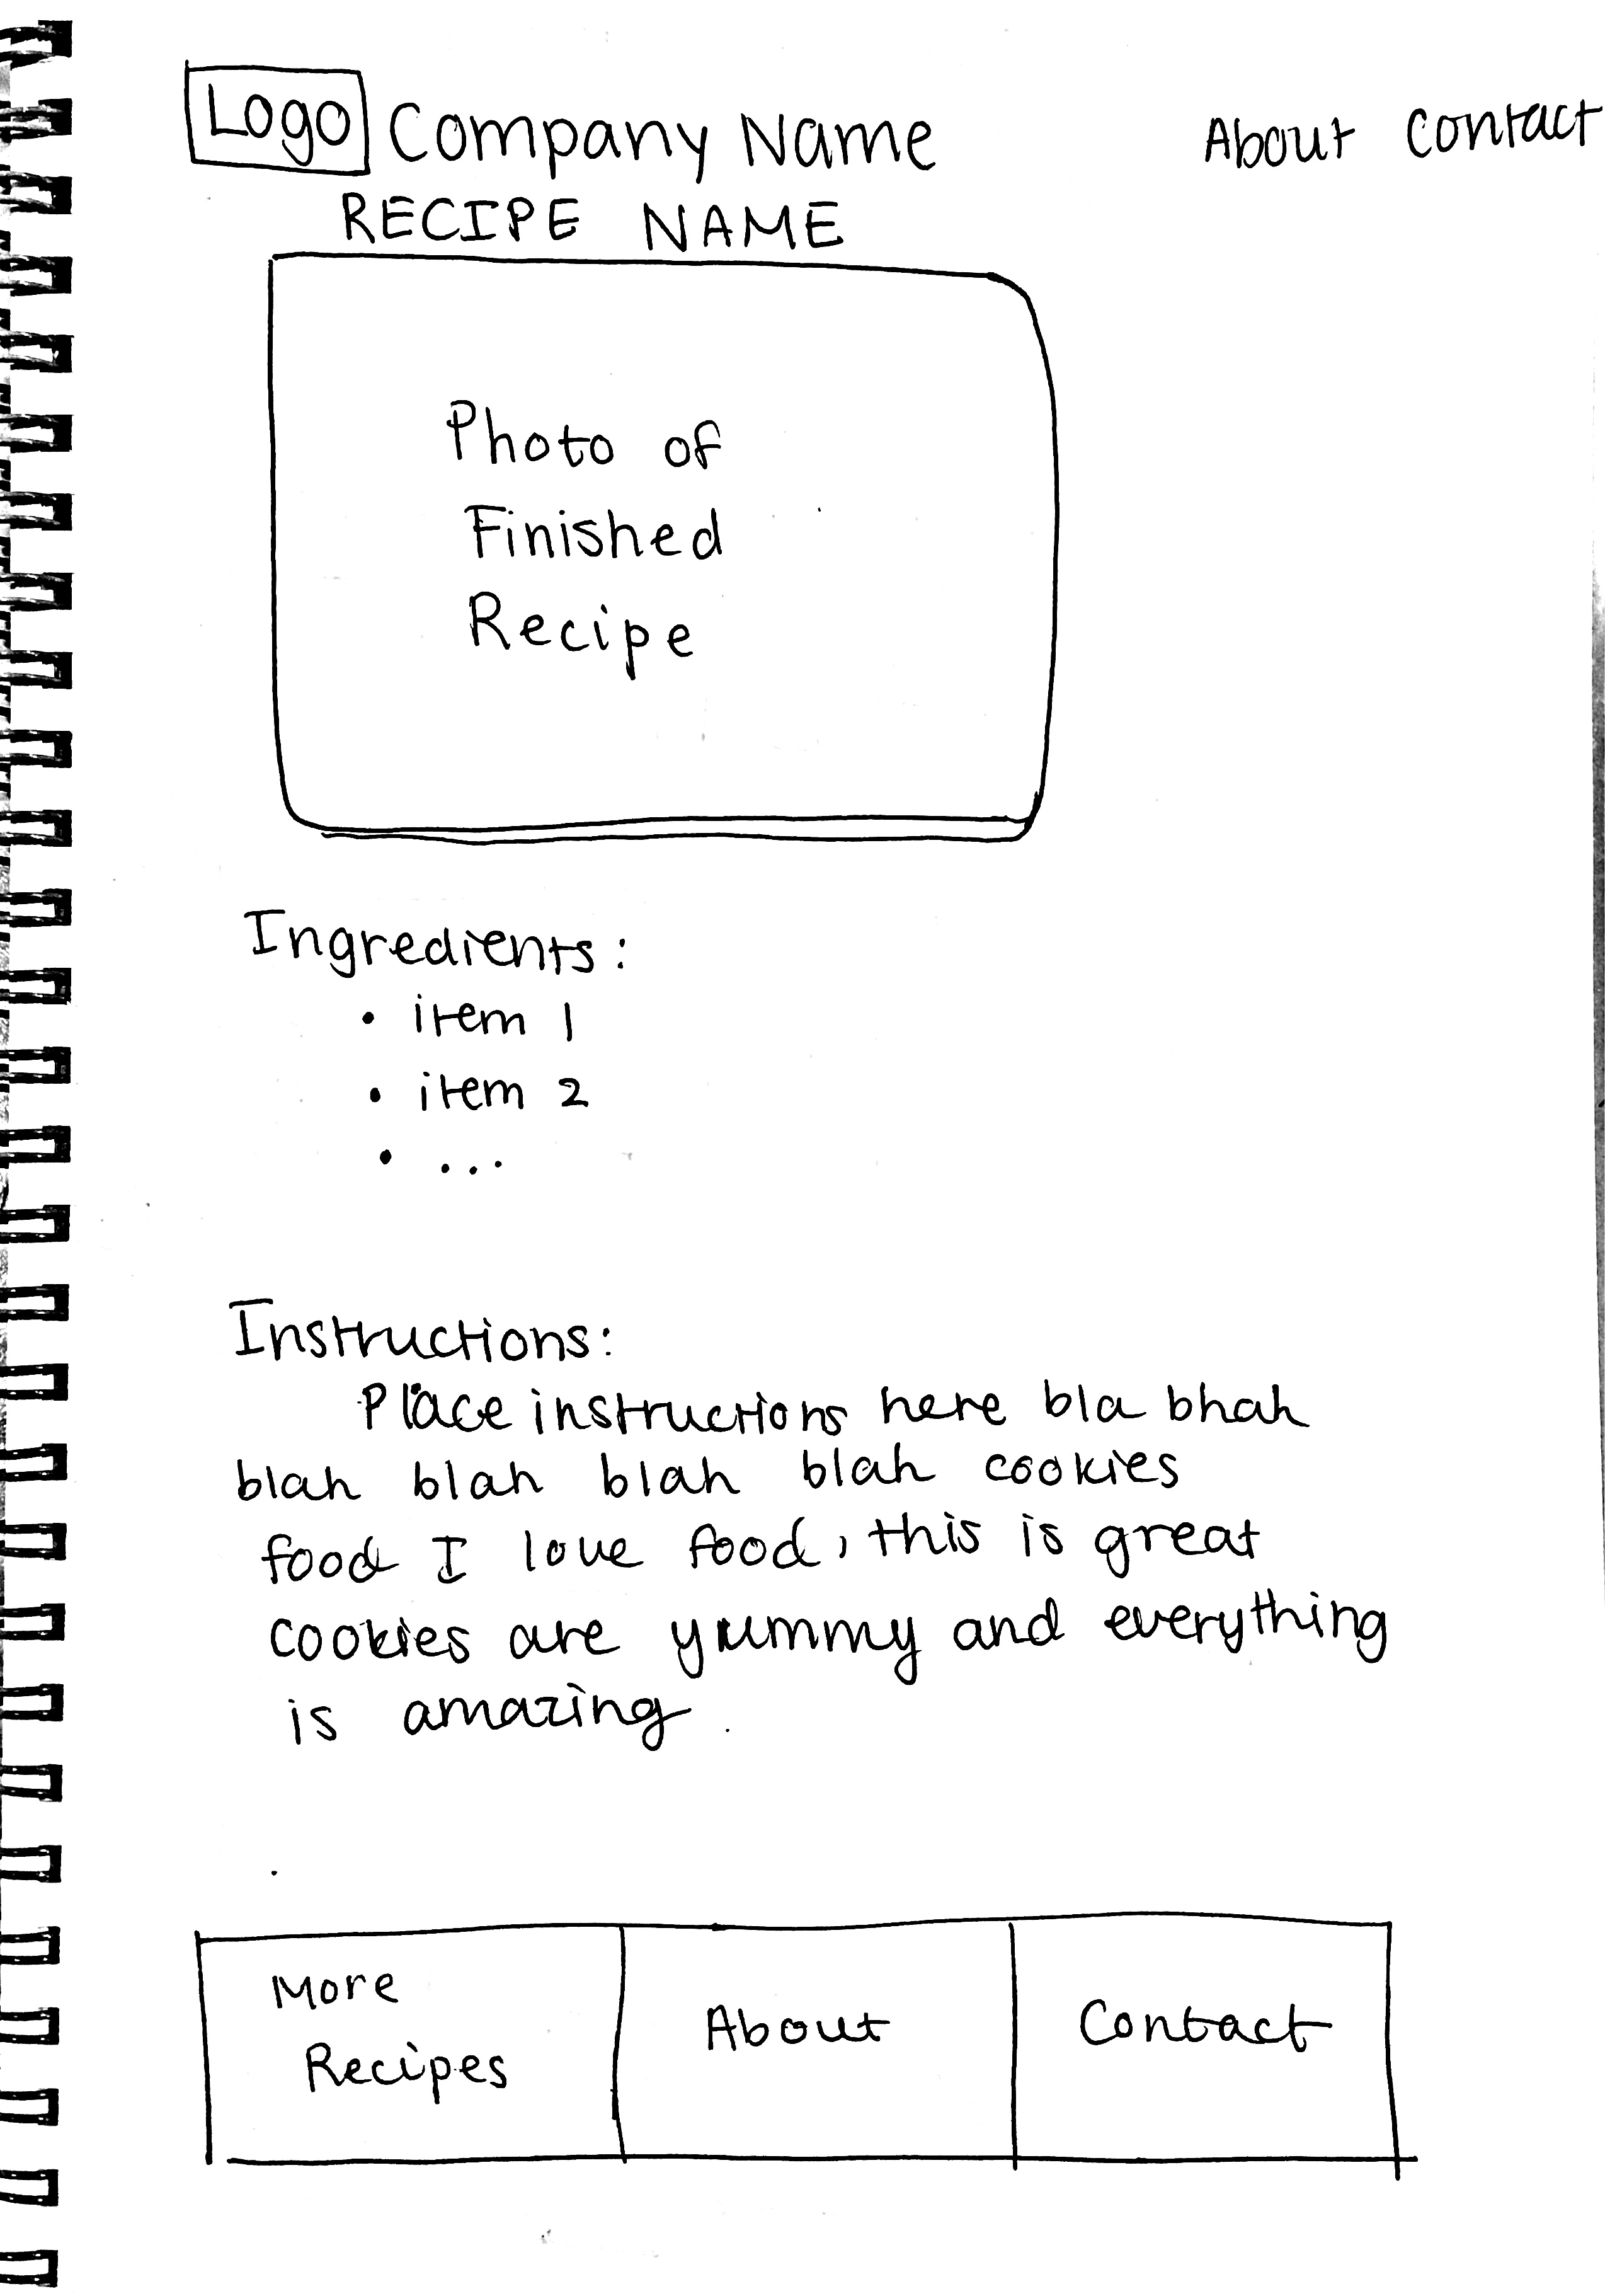 Logo Company Name About Contact
RECIPE NAME
Photo of
Finished
Recipe
Ingredients:
• item 1
• item 2
• ...
Instructions:
Place instructions here bla bhah
blah blah blah blah cookies
food I love food, this is great
cookies are yummy and everything
is amazing.
More
Recipes
About
Contact